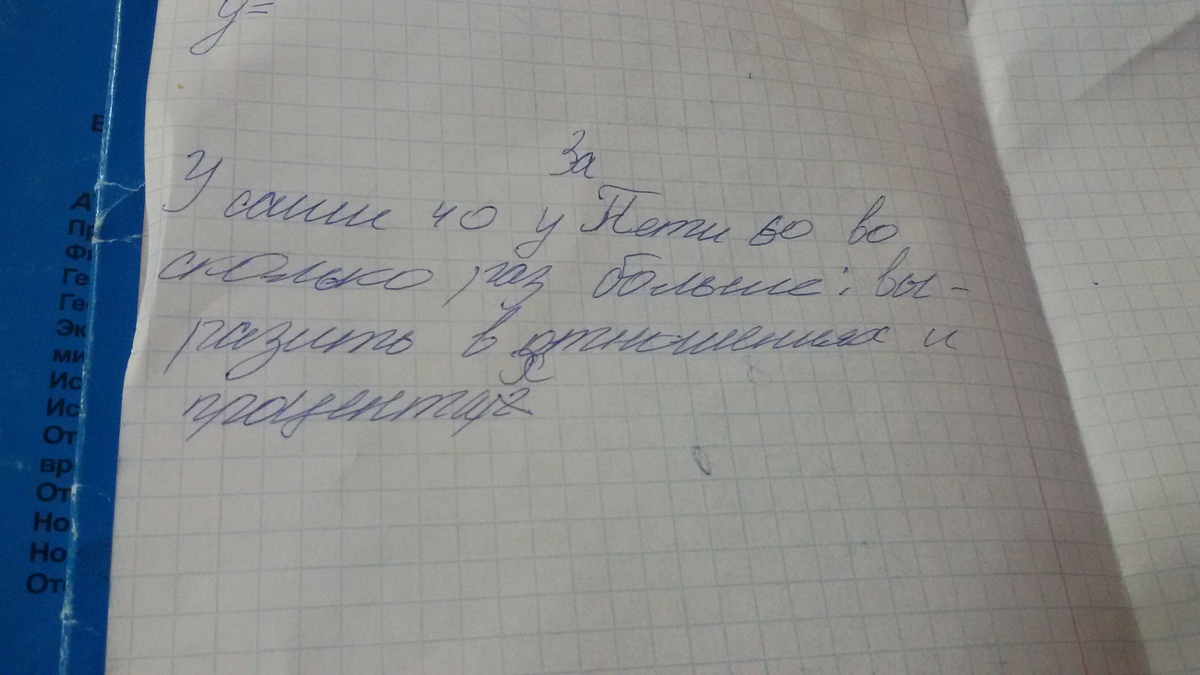 У=
За
У саши 40 у Пети 60 во
сколько раз больше; вы-
разить в отношениях и
процентах
Е
А
Пр
Фи
Ге
Ге
Эк
ми
Ис
Ис
От
вр
От
Но
Но
От